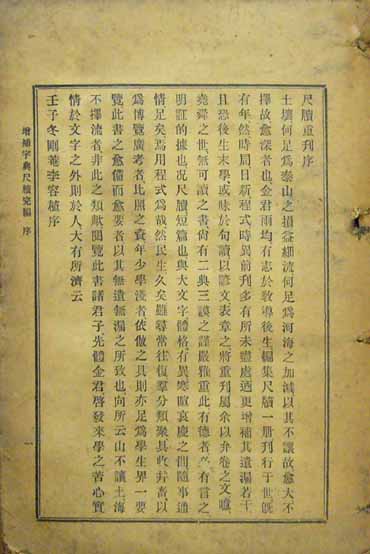 尺牘重刊序
土壤何足爲泰山之損益細流何足爲河海之加減以其不讓故愈大不
擇故愈深者也金君雨均有志於敎導後生編集尺牘一册刊行于世旣
有年然時局日新程式時異前刊多有所未盡處迺更增補其遺漏若干
且恐後生末學或昧於句讀以諺文表章之將重刊屬余以弁卷之文噫
堯舜之世無可讀之書尙有二典三謨之謹嚴雅重此有德者必有言之
明訌的據也况尺牘短篇也與大文字體格有異寒暄哀慶之間隨事通
情足矣焉用程式爲哉然民生久矣雖尋常往復羣分類聚具收幷畜以
爲博覽廣考者比照之資年少學淺者依倣之具則亦足爲學生界一要
覽此書之愈備而愈要者以其無遺無漏之所致也向所云山不讓土海
不擇流者非此之類歟閱覽此書諸君子先體金君啓發來學之苦心實
情於文字之外則於人大有所濟云
壬子冬剛菴李容稙序
增補字典尺牘完編 序
一